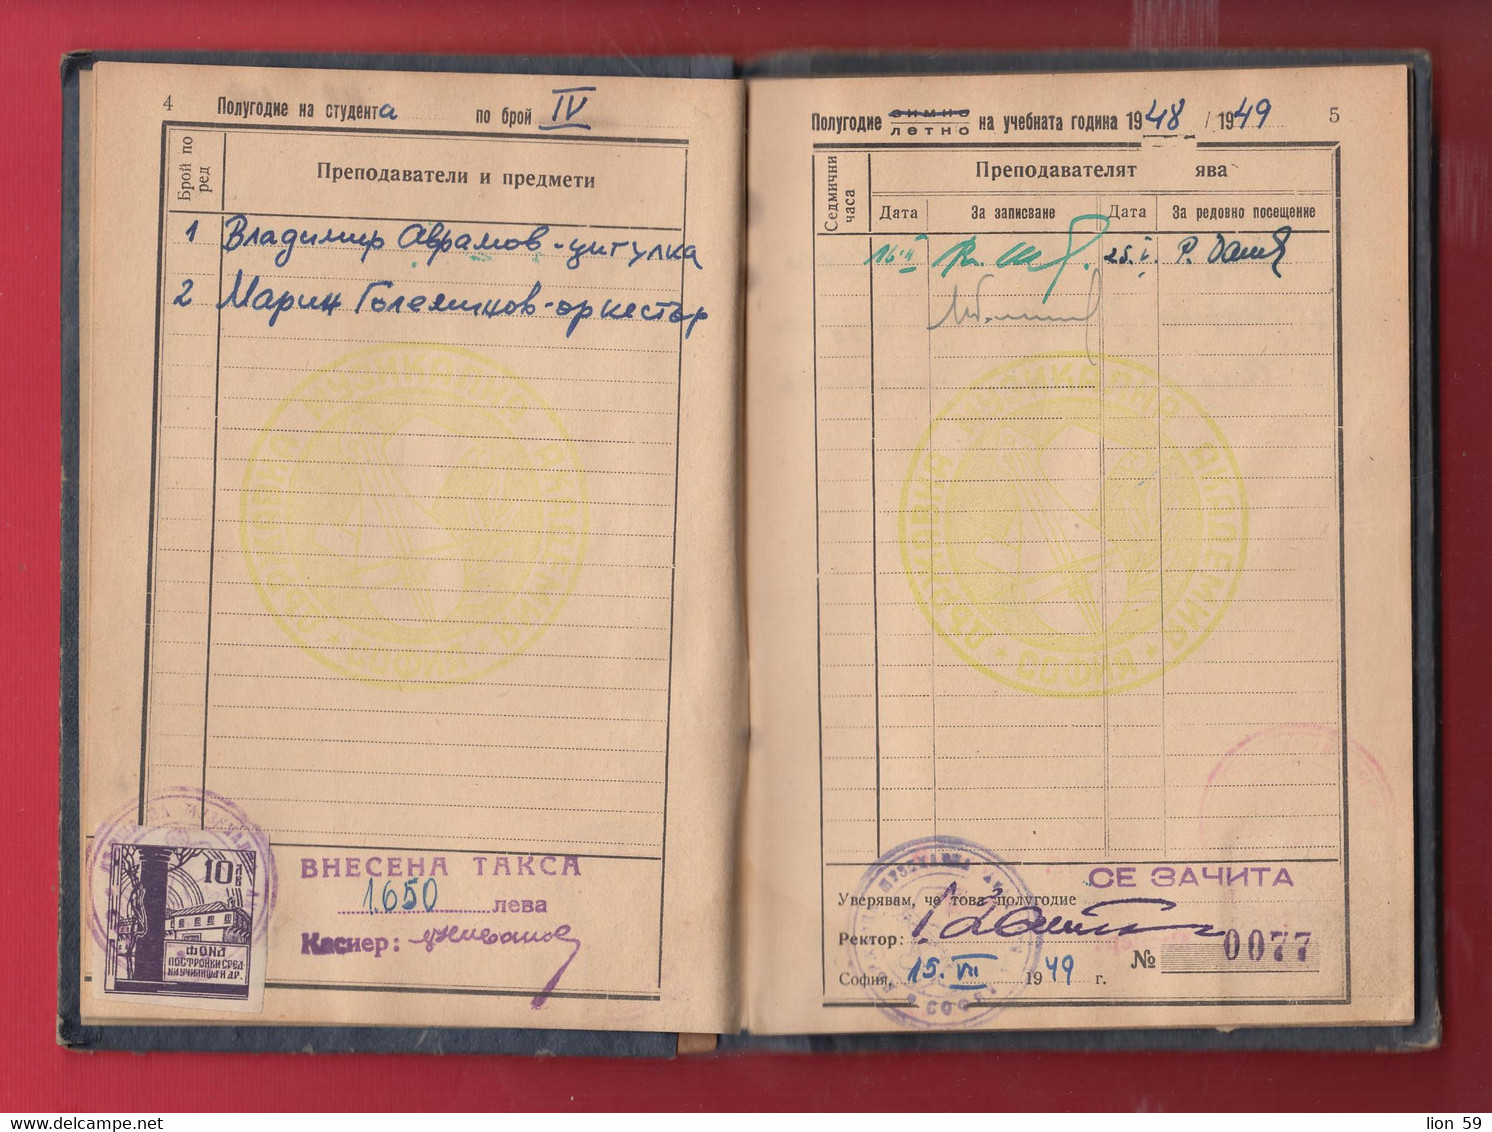 4 Полугодие на студента по брой IV
Брой по ред
Преподаватели и предмети
1 Владимир Аврамов - цигулка
2 Марин Големинов - оркестър
ДЪРЖАВНА МУЗИКАЛНА АКАДЕМИЯ * СОФИЯ *
10 ЛВ
ФОНД
ПОСТРОЙКИ СРЕД
НИ УЧИЛИЩА И ДР.
ВНЕСЕНА ТАКСА
1650 лева
Касиер:
Полугодие зимно
летно на учебната година 1948 / 1949 5
Седмични часа
Преподавателят ява
Дата За записване Дата За редовно посещение
16.II 25.V.
ДЪРЖАВНА МУЗИКАЛНА АКАДЕМИЯ * СОФИЯ *
СЕ ЗАЧИТА
Уверявам, че това полугодие
Ректор:
№ 0077
София, 15.VII 1949 г.
lion 59